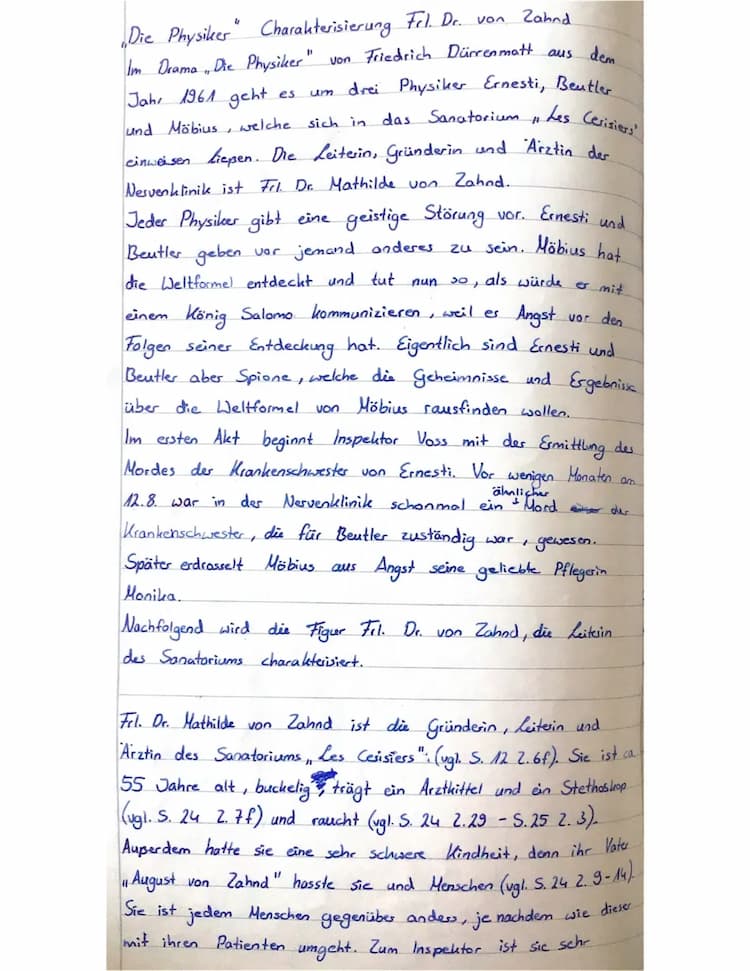 „Die Physiker" Charakterisierung Frl. Dr. von Zahnd
Im Drama „Die Physiker" von Friedrich Dürrenmatt aus dem
Jahr 1961 geht es um drei Physiker Ernesti, Beutler
und Möbius, welche sich in das Sanatorium „Les Cerisiers"
einweisen ließen. Die Leiterin, Gründerin und Ärztin der
Nervenklinik ist Frl. Dr. Mathilde von Zahnd.
Jeder Physiker gibt eine geistige Störung vor. Ernesti und
Beutler geben vor jemand anderes zu sein. Möbius hat
die Weltformel entdeckt und tut nun so, als würde er mit
einem König Salomo kommunizieren, weil er Angst vor den
Folgen seiner Entdeckung hat. Eigentlich sind Ernesti und
Beutler aber Spione, welche die Geheimnisse und Ergebnisse
über die Weltformel von Möbius rausfinden wollen.
Im ersten Akt beginnt Inspektor Voss mit der Ermittlung des
Mordes der Krankenschwester von Ernesti. Vor wenigen Monaten am
12.8. war in der Nervenklinik schonmal ein ähnlicher Mord der
Krankenschwester, die für Beutler zuständig war, gewesen.
Später erdrosselt Möbius aus Angst seine geliebte Pflegerin
Monika.
Nachfolgend wird die Figur Frl. Dr. von Zahnd, die Leiterin
des Sanatoriums charakterisiert.
Frl. Dr. Mathilde von Zahnd ist die Gründerin, Leiterin und
Ärztin des Sanatoriums „Les Cerisiers": (vgl. S. 12 Z. 6f). Sie ist ca
55 Jahre alt, buckelig, trägt ein Arztkittel und ein Stethoskop
(vgl. S. 24 Z. 7f) und raucht (vgl. S. 24 Z. 29 - S. 25 Z. 3).
Außerdem hatte sie eine sehr schwere Kindheit, denn ihr Vater
„August von Zahnd" hasste sie und Menschen (vgl. S. 24 Z. 9-14)
Sie ist jedem Menschen gegenüber anders, je nachdem wie dieser
mit ihren Patienten umgeht. Zum Inspektor ist sie sehr